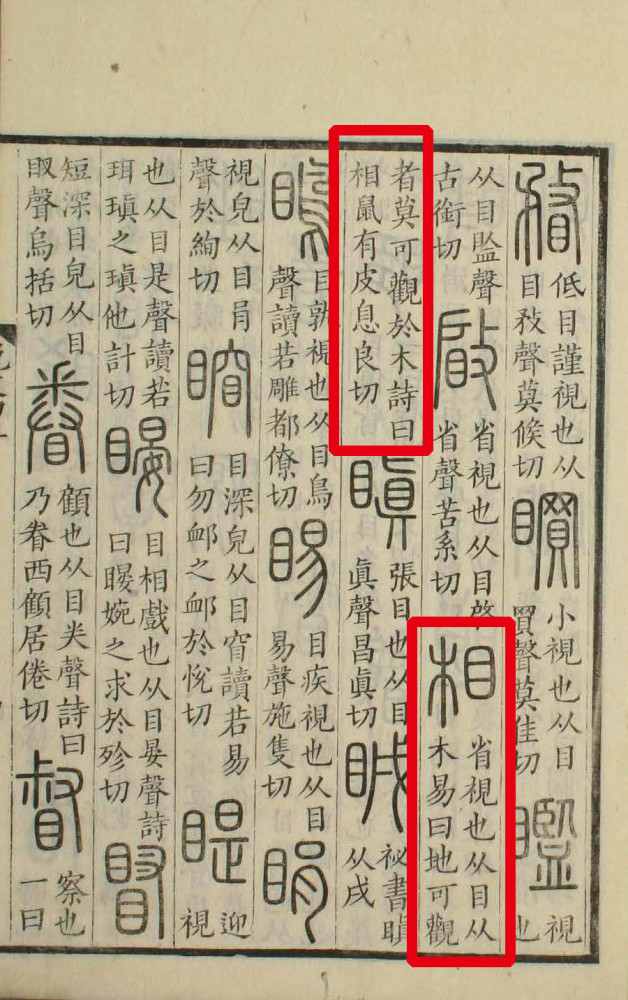 瞀
低目謹視也从
目敄聲莫候切
䁲
小視也从目
買聲莫佳切
視
也
从目監聲
古銜切
䁈
省視也从目啓
省聲苦系切
相
省視也从目从
木易曰地可觀
者莫可觀於木詩曰
相鼠有皮息良切
瞋
張目也从目
眞聲昌眞切
祕書瞋
从戌
瞗
目孰視也从目鳥
聲讀若雕都僚切
睗
目疾視也从目
易聲施隻切
睊
視皃从目肙
聲於絢切
目深皃从目窅讀若易
曰勿䘏之䘏於悅切
睼
迎
視
也从目是聲讀若
珥瑱之瑱他計切
目相戲也从目晏聲詩
曰䁙婉之求於殄切
短深目皃从目
臤聲烏括切
眷
顧也从目𠔉聲詩曰
乃眷西顧居倦切
督
察也
一曰